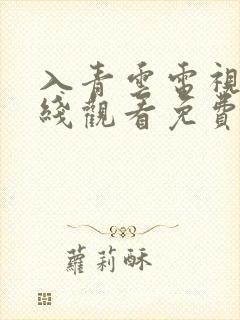 入青雲電視
綫觀看免費
蘿莉酥